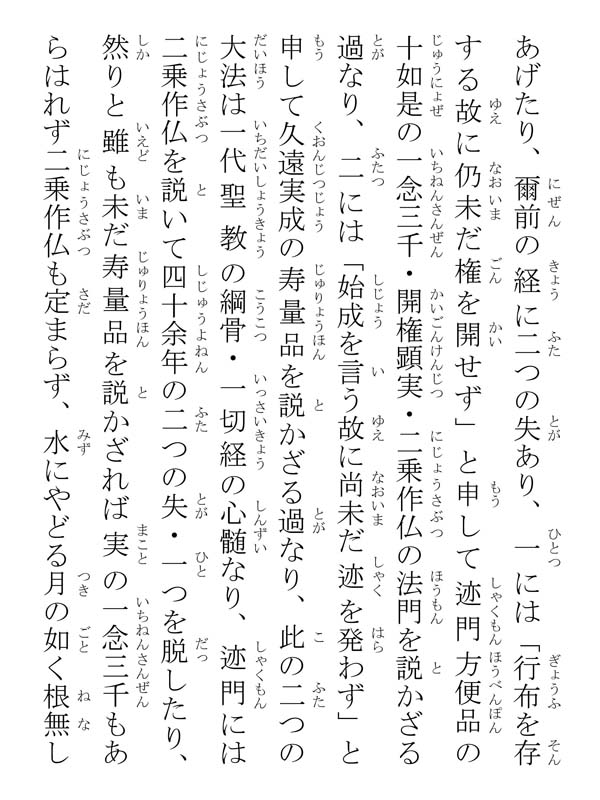 あげたり、爾前の経に二つの失あり、一には「行布を存
する故に仍未だ権を開せず」と申して迹門方便品の
十如是の一念三千・開権顕実・二乗作仏の法門を説かざる
過なり、二には「始成を言う故に尚未だ迹を発わず」と
申して久遠実成の寿量品を説かざる過なり、此の二つの
大法は一代聖教の綱骨・一切経の心髄なり、迹門には
二乗作仏を説いて四十余年の二つの失・一つを脱したり、
然りと雖も未だ寿量品を説かざれば実の一念三千もあ
らはれず二乗作仏も定まらず、水にやどる月の如く根無し